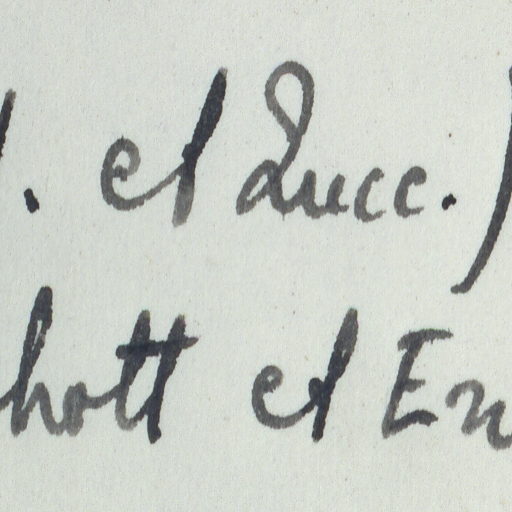 . et Zucc.)
hott et En